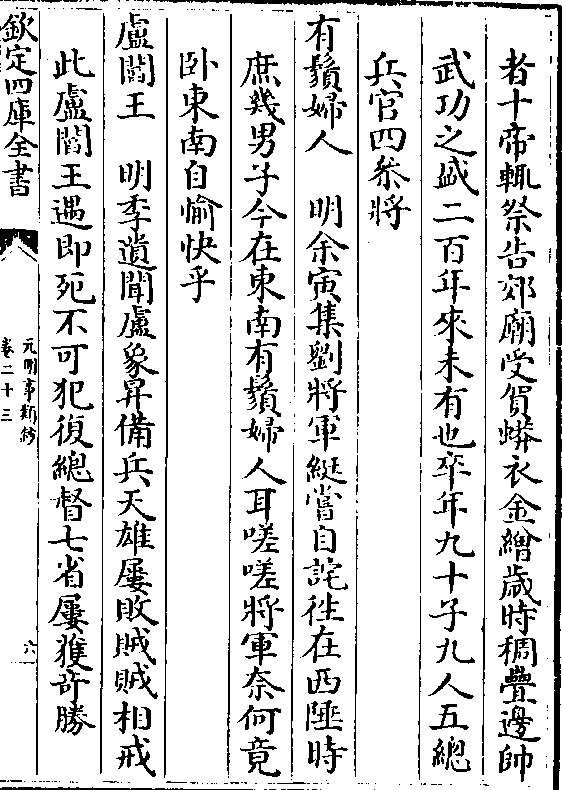 者十帝輒祭告郊廟受賀蟒衣金繒歲時稠疊邊帥
武功之盛二百年來未有也卒年九十子九人五總
兵官四叅將
有鬚婦人　明余寅集劉將軍綎嘗自詫徃在西陲時
庶幾男子今在東南有鬚婦人耳嗟嗟將軍奈何竟
卧東南自愉快乎
盧閻王　明季遺聞盧象昇備兵天雄屢敗賊賊相戒
此盧閻王遇即死不可犯復總督七省屢獲奇勝
欽定四庫全書
元明事類鈔
卷二十三
六